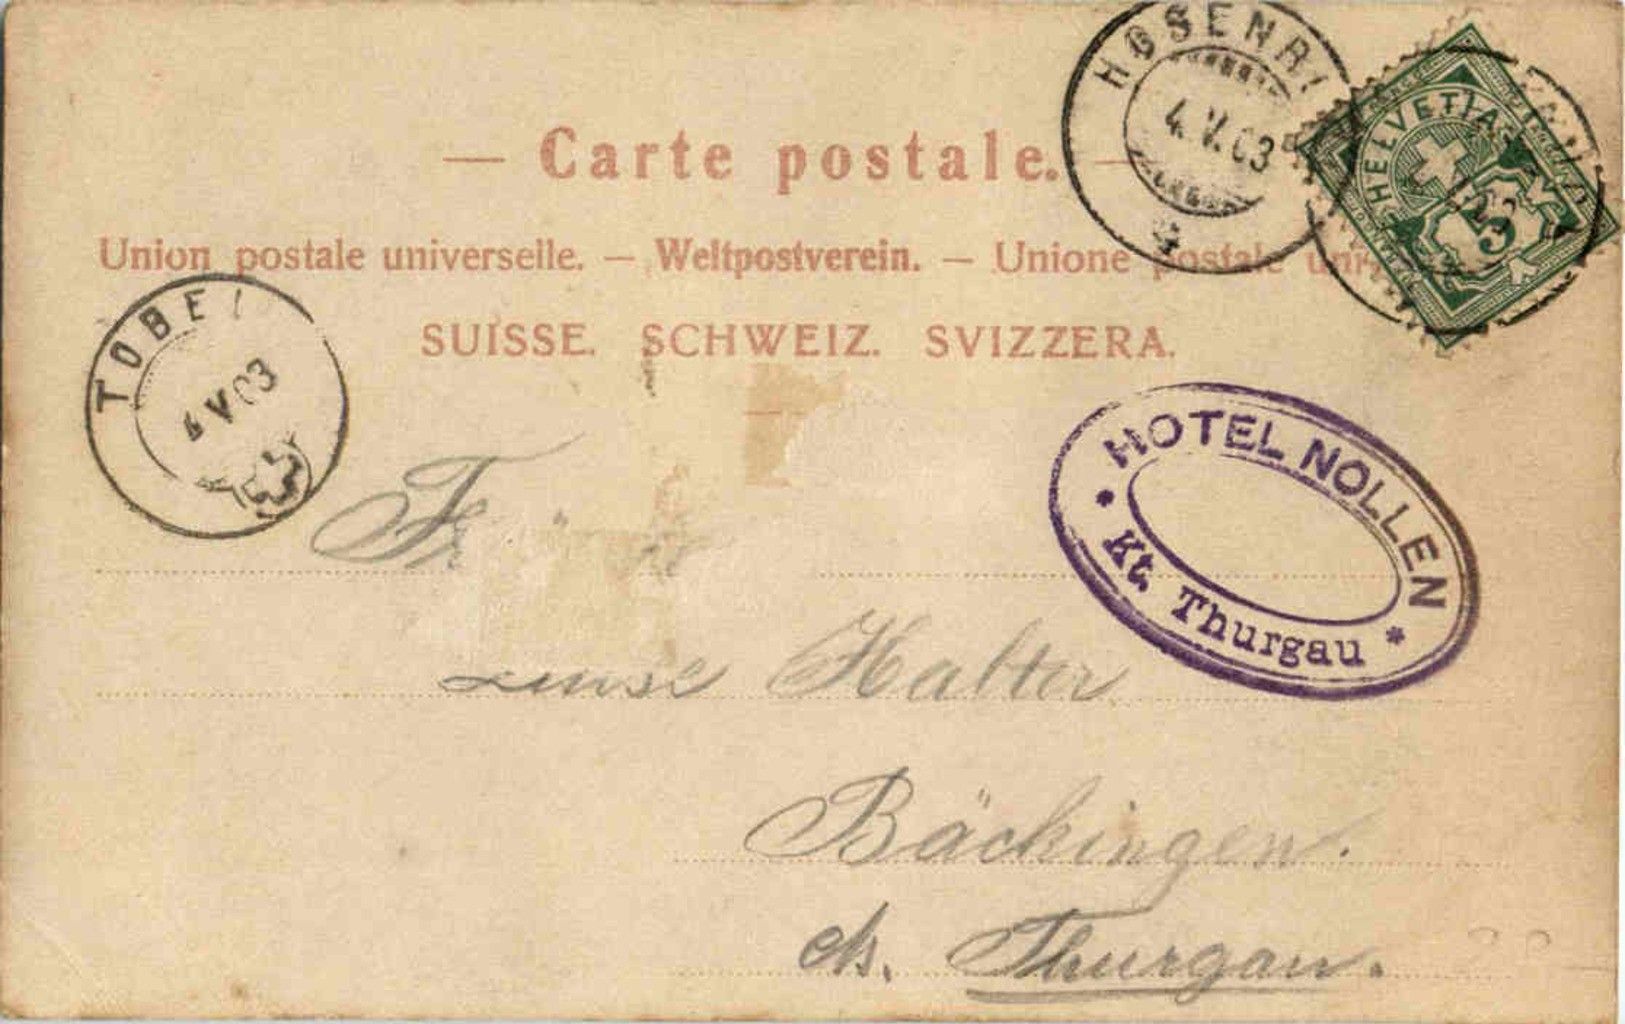 — Carte postale. —
Union postale universelle. — Weltpostverein. — Unione postale
SUISSE. SCHWEIZ. SVIZZERA.
HOSENR
4.V.03
HELVETIA
5
TOBEL
4 V 03
HOTEL NOLLEN
* Kt. Thurgau *
Halter
Bäckingen.
Thurgau.